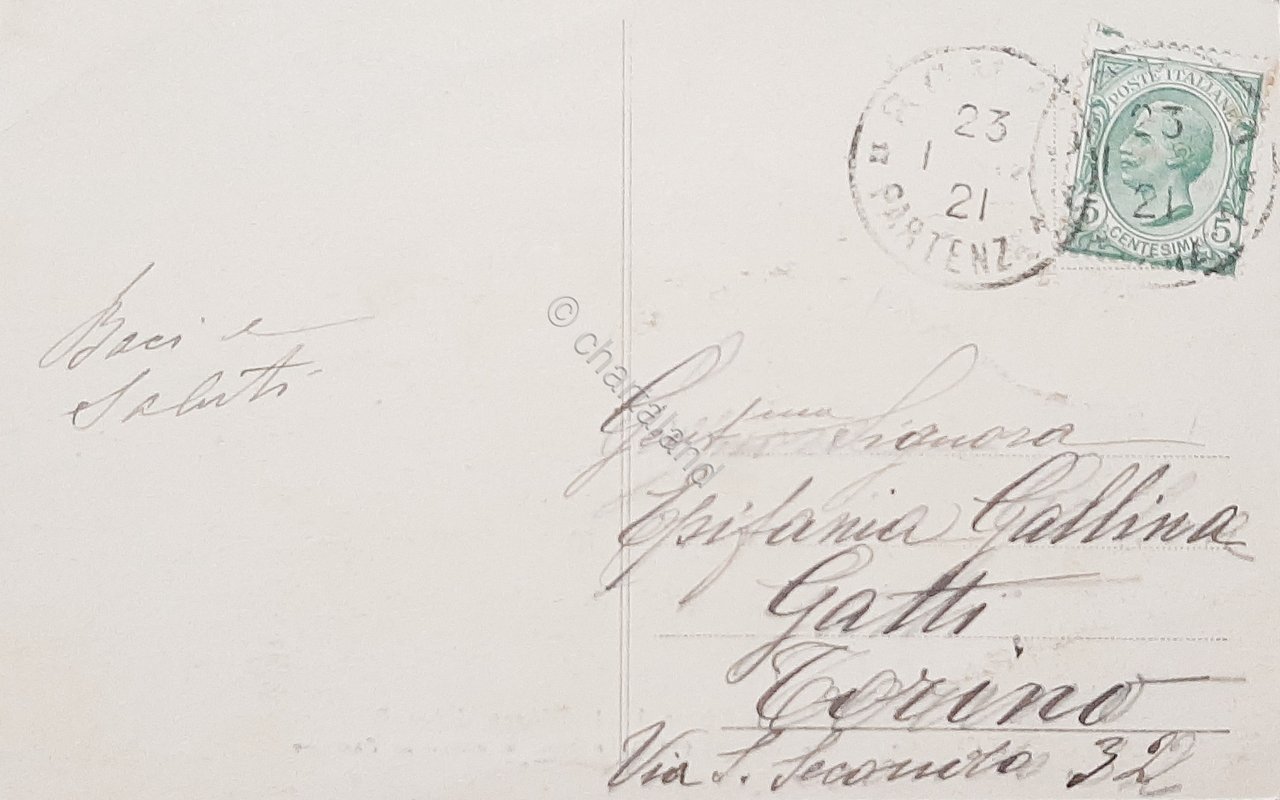 Baci e
Saluti
23
1
21
PARTENZA
POSTE ITALIANE
23
21
5 CENTESIMI 5
© chartaland
Gent.ma Signora
Epifania Gallina
Gatti
Torino
Via S. Secondo 32